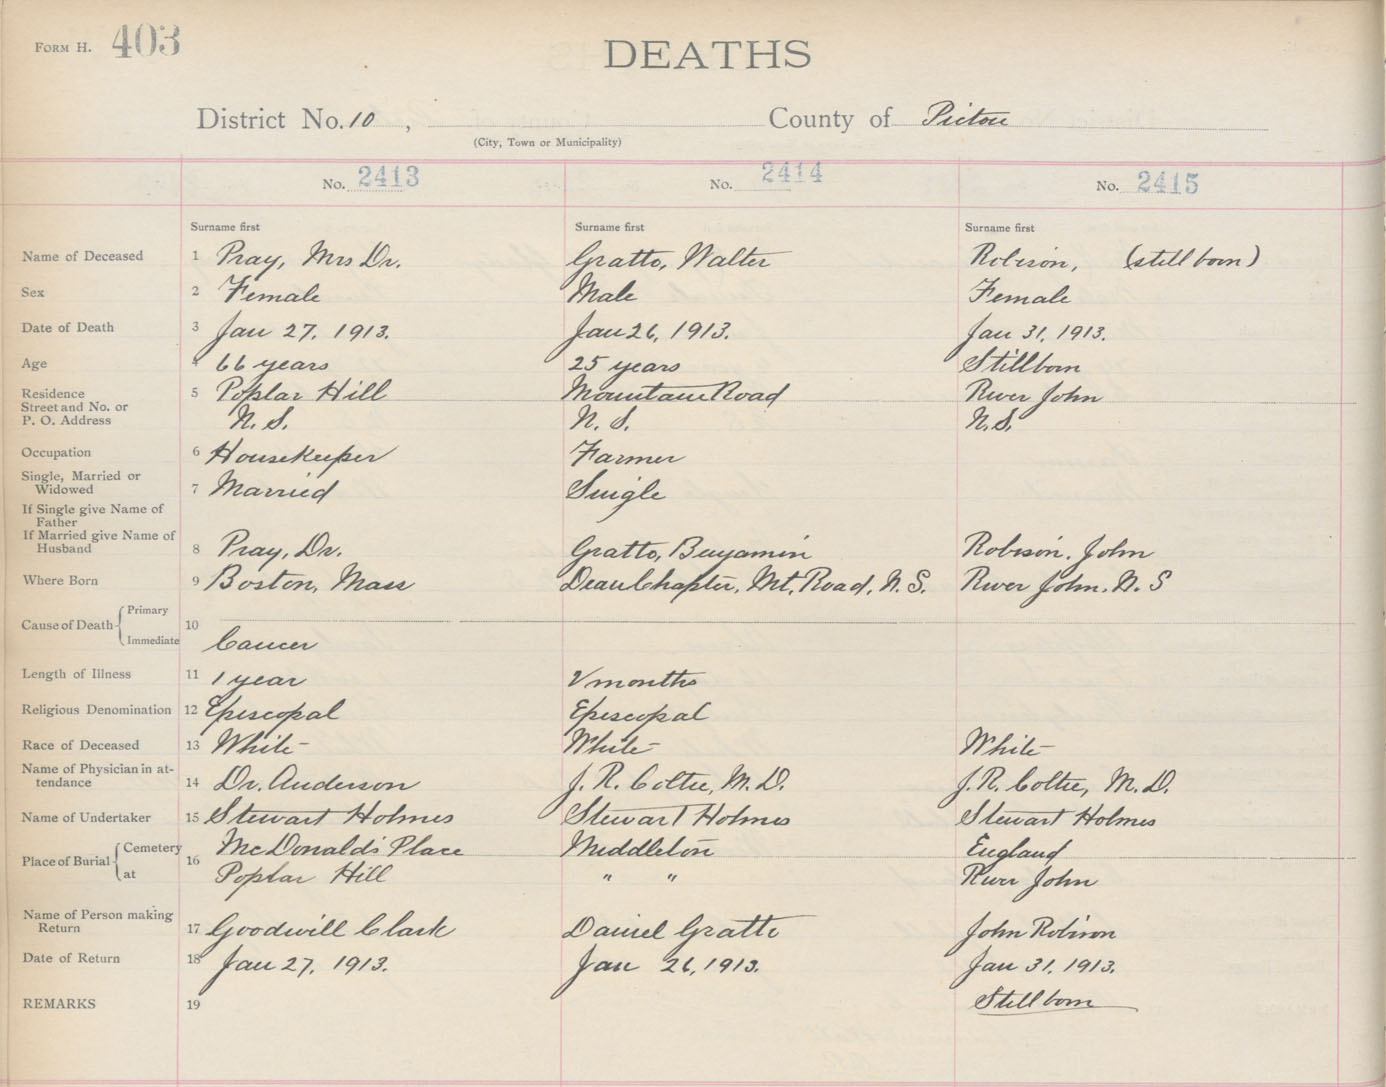 FORM H. 403
DEATHS
District No. 10 , County of Pictou
(City, Town or Municipality)
No. 2413 No. 2414 No. 2415
Surname first Surname first Surname first
Name of Deceased 1 Pray, Mrs Dr. Gratto, Walter Robison, (stillborn)
Sex 2 Female Male Female
Date of Death 3 Jan 27, 1913. Jan 26, 1913. Jan 31, 1913.
Age 4 66 years 25 years Stillborn
Residence 5 Poplar Hill Mountain Road River John
Street and No. or
P. O. Address N. S. N. S. N. S.
Occupation 6 Housekeeper Farmer
Single, Married or
Widowed 7 Married Single
If Single give Name of
Father
If Married give Name of
Husband 8 Pray, Dr. Gratto, Benjamin Robison, John
Where Born 9 Boston, Mass Mt, Road, N. S. River John, N. S
Cause of Death Primary 10
Immediate Cancer
Length of Illness 11 1 year 2 months
Religious Denomination 12 Episcopal Episcopal
Race of Deceased 13 White White White
Name of Physician in at-
tendance 14 Dr. Anderson J. R. Collie, M. D. J. R. Collie, M. D.
Name of Undertaker 15 Stewart Holmes Stewart Holmes Stewart Holmes
Place of Burial Cemetery 16 McDonald's Place Middleton England
at Poplar Hill " " River John
Name of Person making
Return 17 Goodwill Clark Daniel Gratto John Robison
Date of Return 18 Jan 27, 1913. Jan 26, 1913. Jan 31, 1913.
REMARKS 19 Stillborn